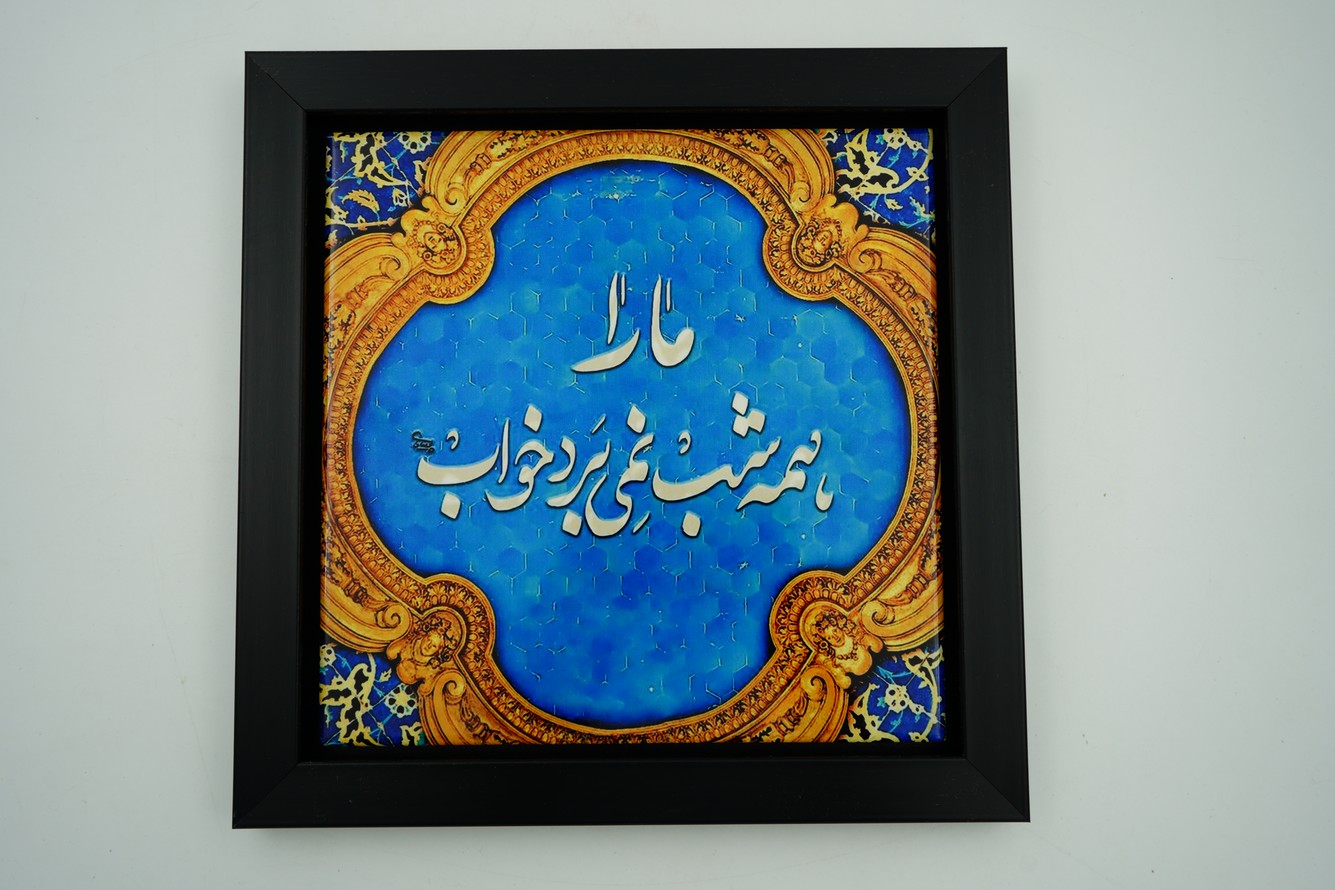 ما را
همه شب نمی‌بَرد خواب